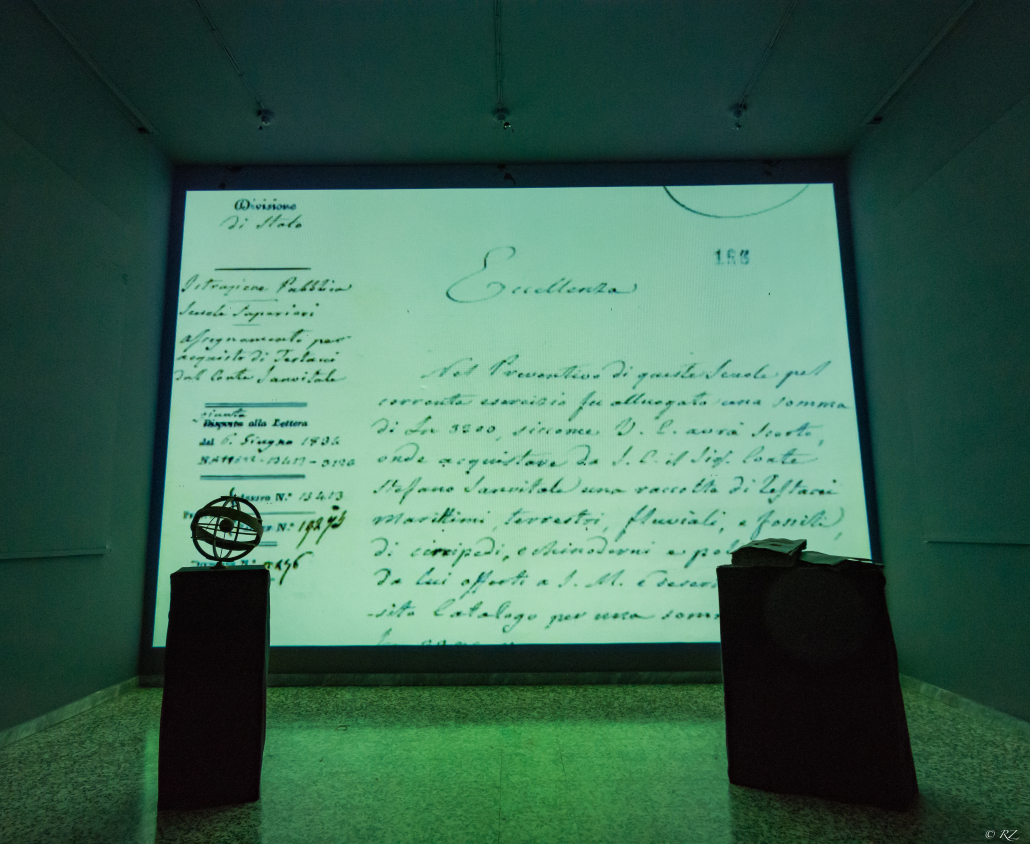 Divisione
di Stato
Istruzione Pubblica
Scuole Superiori
Assegnamento per
acquisto di Testacei
dal Conte Sanvitale
alla Lettera
dal 6. Giugno 1834
N.° 13413
N.°
Eccellenza
Nel Preventivo di queste Scuole pel
corrente esercizio fu alluogata una somma
di Ln 3200, siccome V. E. avrà scorto,
onde acquistare da S. E. il Sig. Conte
Stefano Sanvitale una raccolta di Testacei
marittimi, terrestri, fluviali, e fossili,
di cirripedi, echinodermi e
da lui offerti a S. M.
-sito Catalogo per una
© RZ